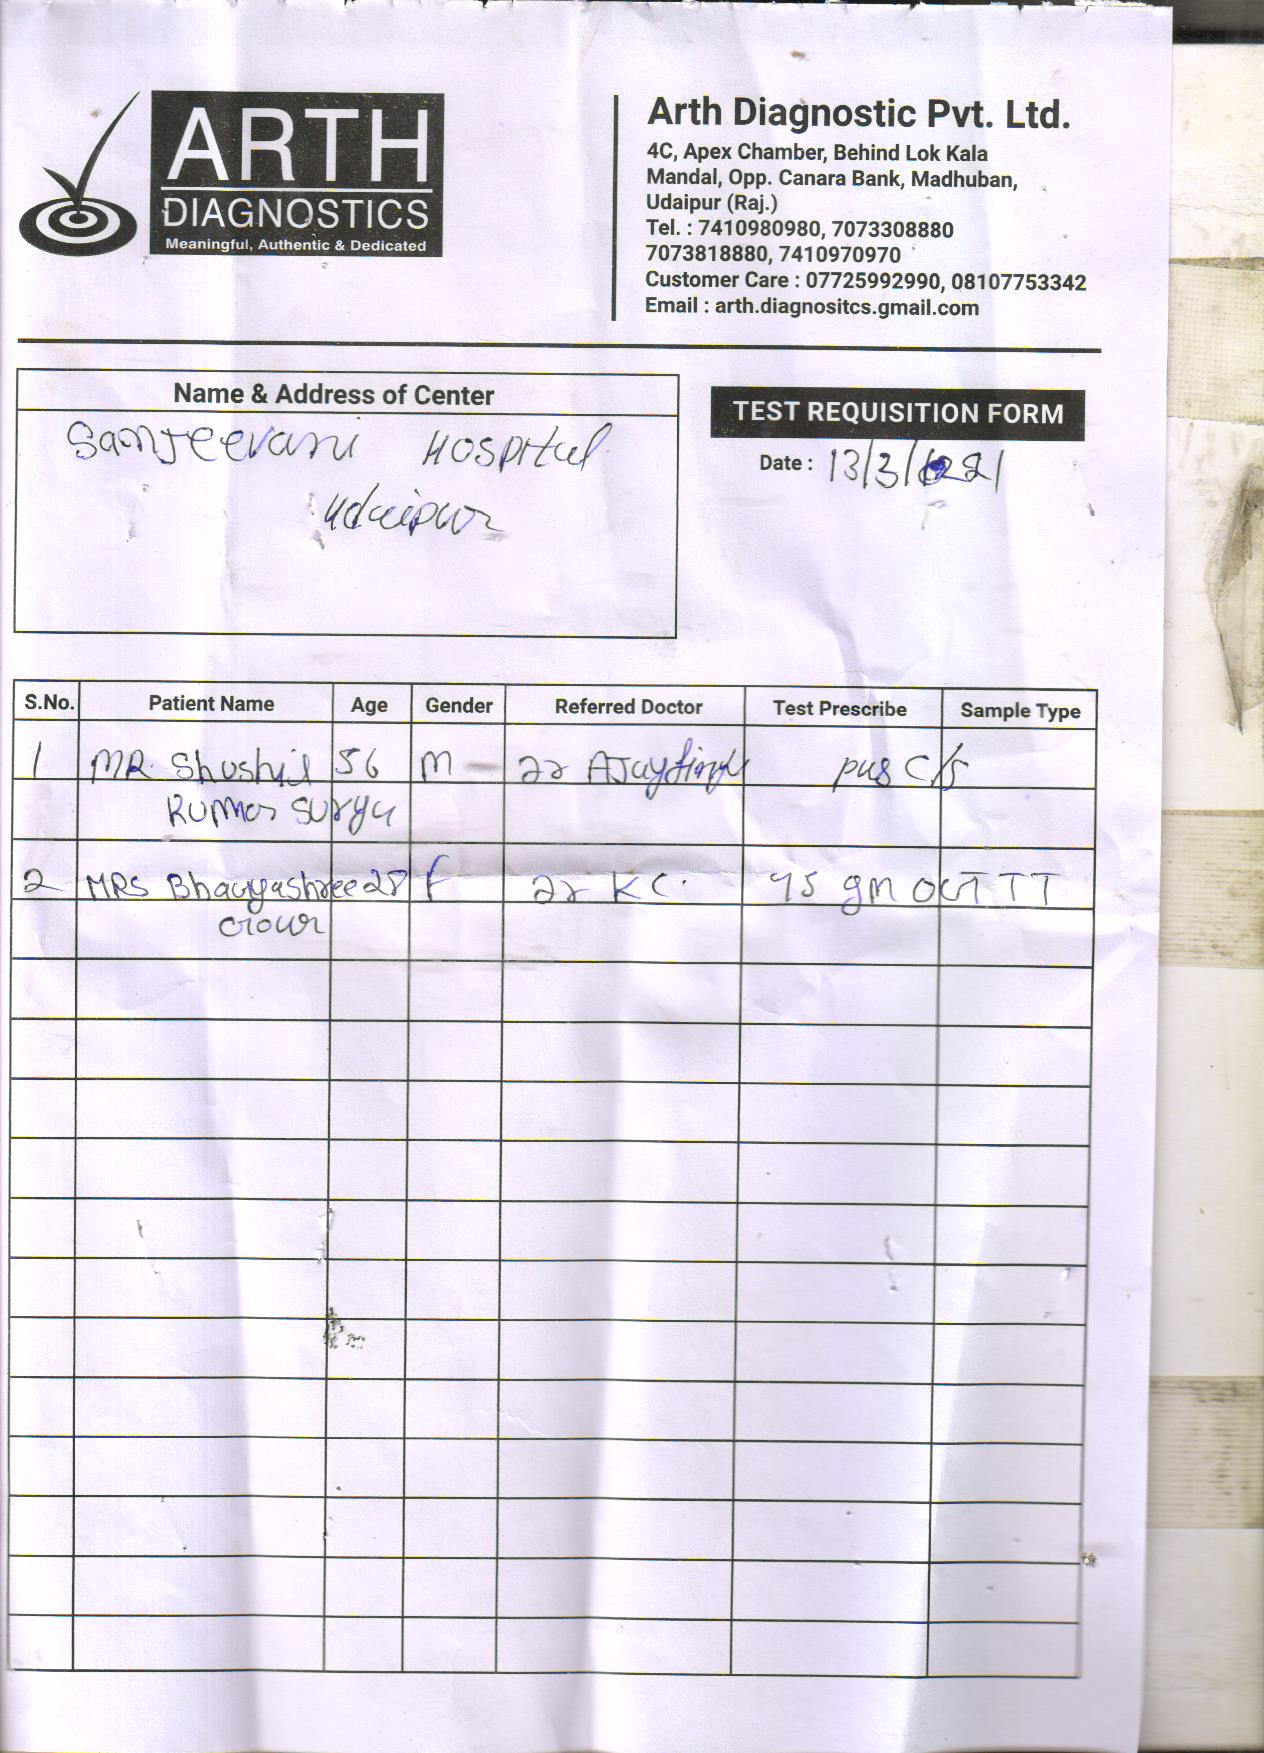 ARTH
DIAGNOSTICS
Meaningful, Authentic & Dedicated
Arth Diagnostic Pvt. Ltd.
4C, Apex Chamber, Behind Lok Kala
Mandal, Opp. Canara Bank, Madhuban,
Udaipur (Raj.)
Tel. : 7410980980, 7073308880
7073818880, 7410970970
Customer Care : 07725992990, 08107753342
Email : arth.diagnositcs.gmail.com
Name & Address of Center
Sanjeevani Hospital
Udaipur
TEST REQUISITION FORM
Date : 13/3/
S.No. Patient Name Age Gender Referred Doctor Test Prescribe Sample Type
1 MR. Shushil 56 M Dr Ajay Singh pus C/S
Kumar Surya
2 MRS Bhagyashree 28 F Dr K C. 75 gm OGTT
Gour